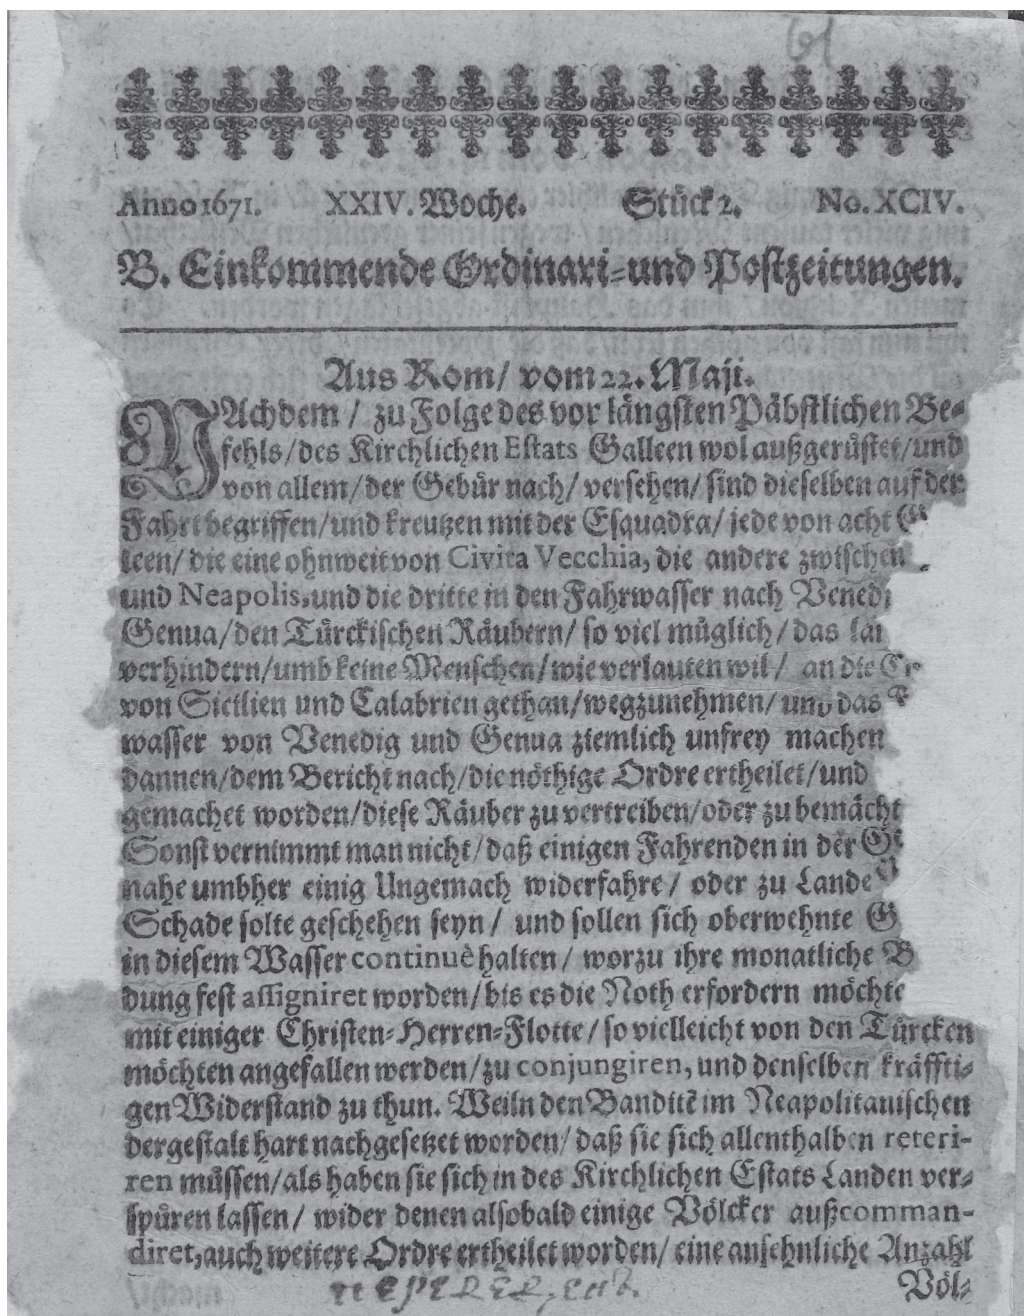 61
Anno 1671. XXIV. Woche. Stück 2. No. XCIV.
B. Einkommende Ordinari-und Postzeitungen.
Aus Rom/ vom 22. Maji.
NAchdem/ zu Folge des vor längsten Päbstlichen Be-
fehls/des Kirchlichen Estats Galleen wol außgerüstet/und
von allem/der Gebür nach/ versehen/ sind dieselben auf der
Fahrt begriffen/und kreutzen mit der Esquadra/ jede von acht G
leen/ die eine ohnweit von Civita Vecchia, die andere zwischen
und Neapolis, und die dritte in den Fahrwasser nach Vened
Genua/den Türckischen Räubern/ so viel müglich/ das
verhindern/umb keine Menschen/wie verlauten wil/ an die
von Sicilien und Calabrien gethan/wegzunehmen/ und das
wasser von Venedig und Genua ziemlich unfrey machen
dannen/dem Bericht nach/die nöthige Ordre ertheilet/und
gemachet worden/diese Räuber zu vertreiben/oder zu bemächt
Sonst vernimmt man nicht/daß einigen Fahrenden in der
nahe umbher einig Ungemach widerfahre/ oder zu Lande
Schade solte geschehen seyn/ und sollen sich oberwehnte G
in diesem Wasser continuè halten/ worzu ihre monatliche B
dung fest assigniret worden/bis es die Noth erfordern möchte
mit einiger Christen-Herren-Flotte/so vielleicht von den Türcken
möchten angefallen werden/zu conjungiren, und denselben kräffti-
gen Widerstand zu thun. Weiln den Banditē im Neapolitanischen
dergestalt hart nachgesetzet worden/daß sie sich allenthalben reteri-
ren müssen/als haben sie sich in des Kirchlichen Estats Landen ver-
spüren lassen/ wider denen alsobald einige Völcker außcomman-
diret, auch weitere Ordre ertheilet worden/ eine ansehnliche Anzahl
Völ-